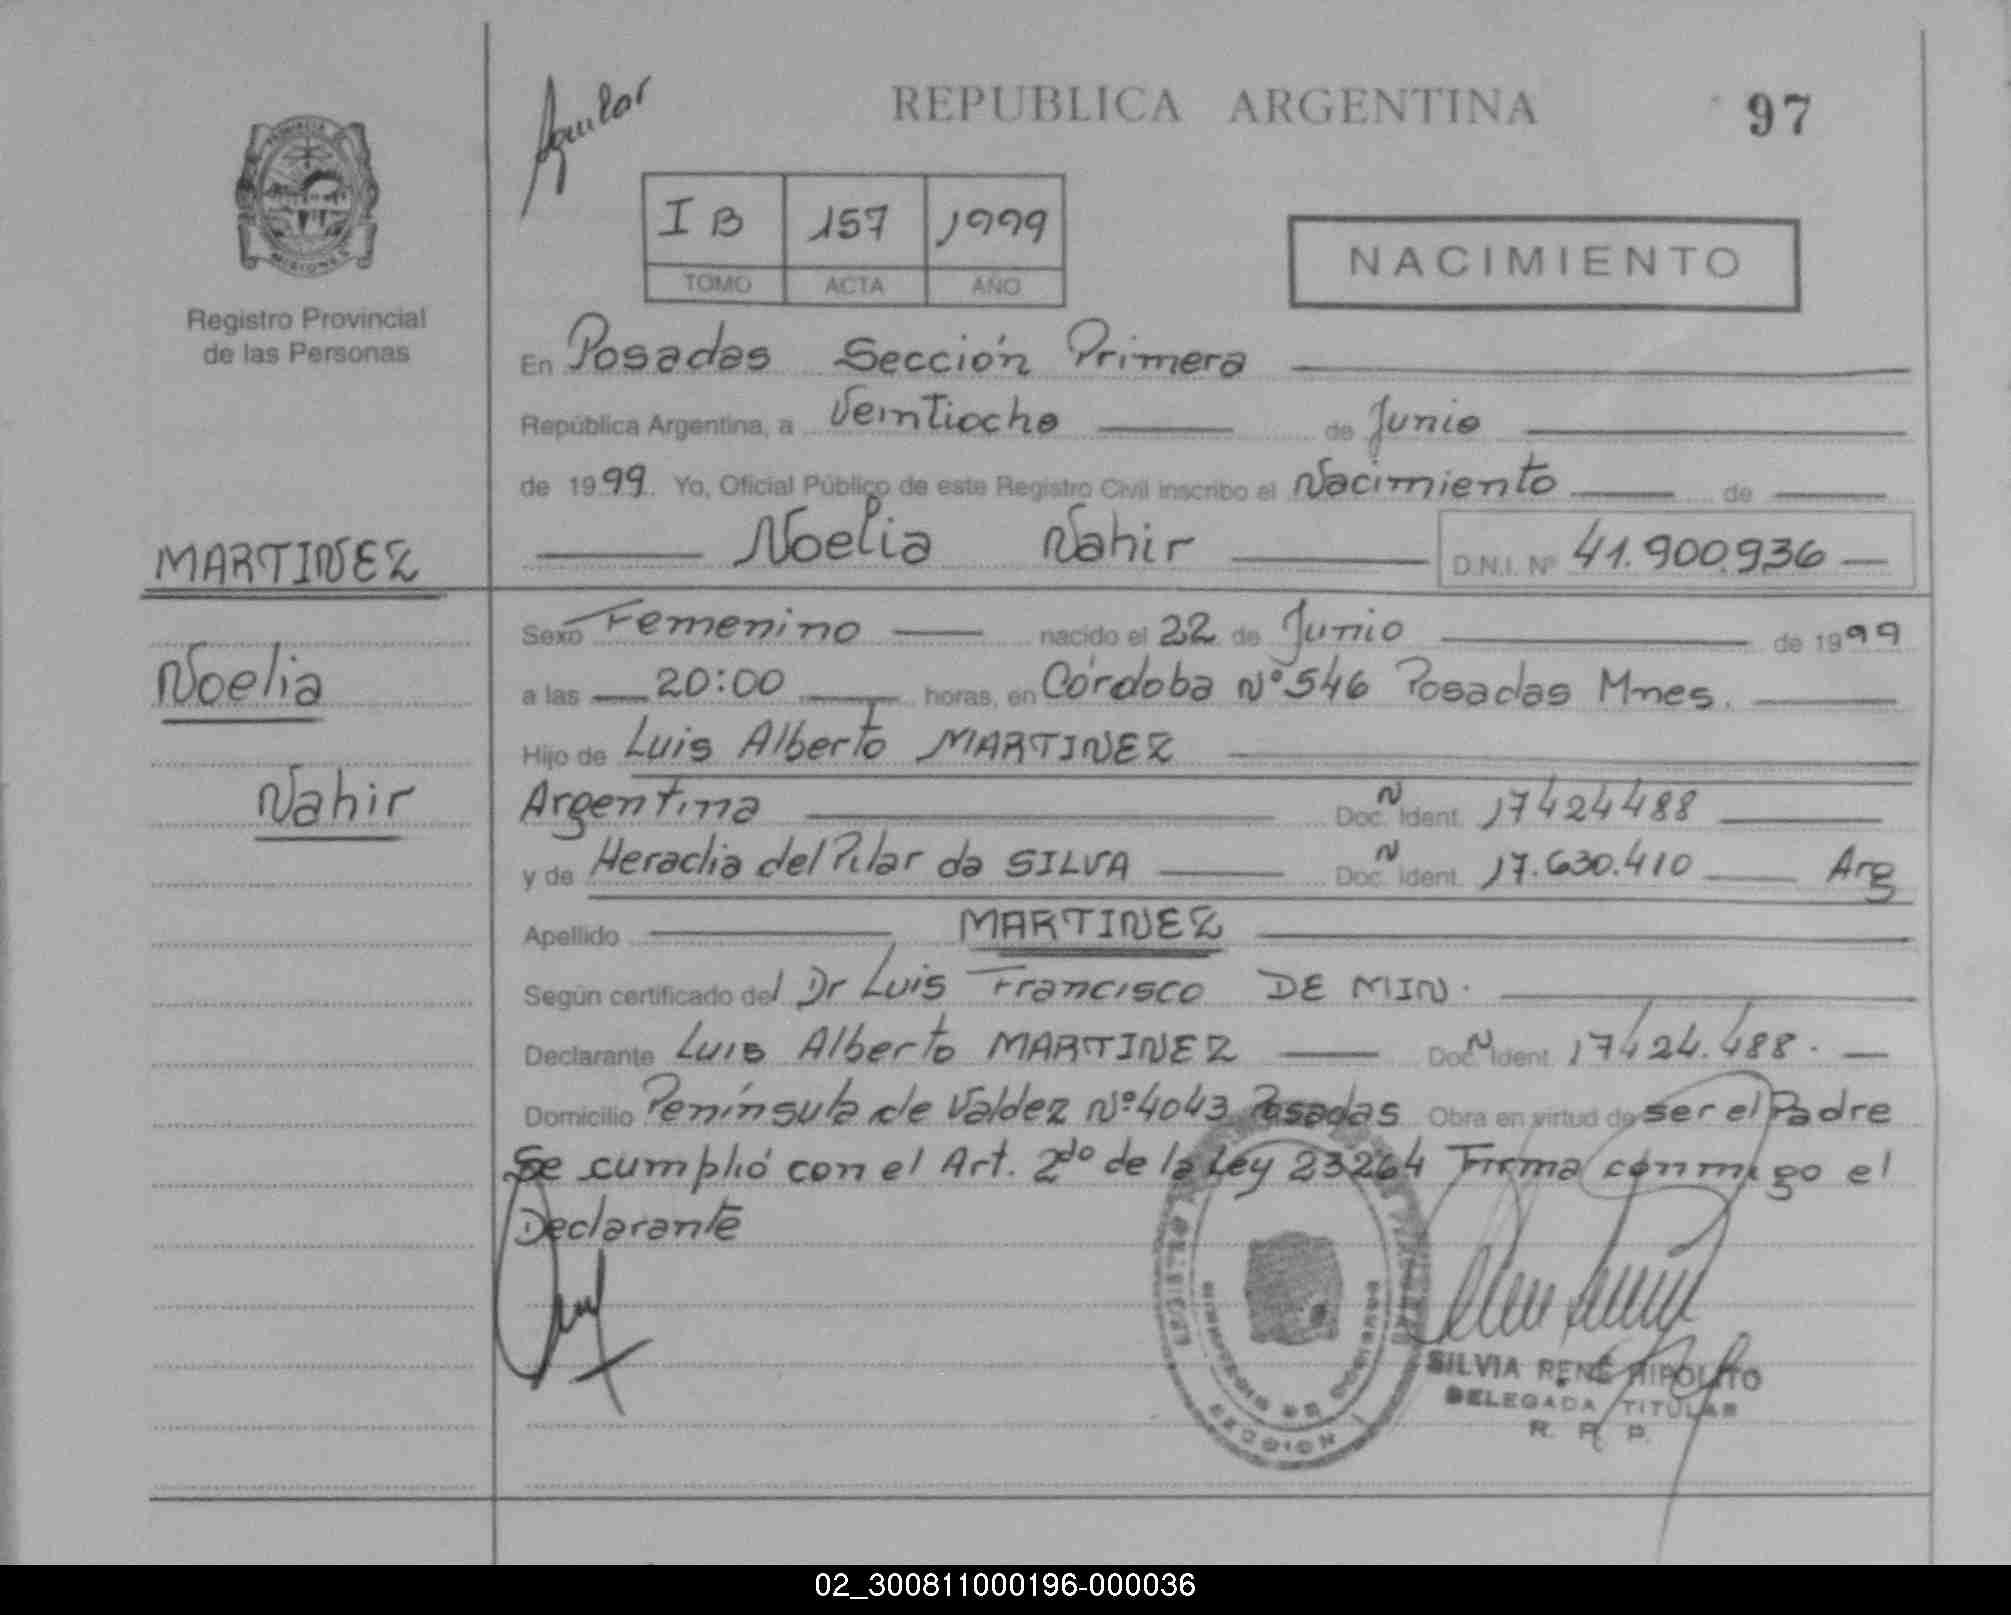 Aguilar
REPUBLICA ARGENTINA
97
I B 157 1999
TOMO ACTA AÑO
NACIMIENTO
PROVINCIA
MISIONES
Registro Provincial
de las Personas
En Posadas Sección Primera
República Argentina, a Veintiocho de Junio
de 1999. Yo, Oficial Público de este Registro Civil inscribo el Nacimiento de
Noelia Nahir D.N.I. Nº 41.900.936
MARTINEZ
Noelia
Nahir
Sexo Femenino nacido el 22 de Junio de 1999
a las 20:00 horas, en Córdoba Nº 546 Posadas Mnes.
Hijo de Luis Alberto MARTINEZ
Argentina Doc. N Ident. 17424488
y de Heraclia del Pilar da SILVA Doc. N Ident. 17.630.410 Arg
Apellido MARTINEZ
Según certificado del Dr Luis Francisco DE MIN.
Declarante Luis Alberto MARTINEZ Doc. N Ident. 17424.488.
Domicilio Península de Valdez Nº 4043 Posadas Obra en virtud de ser el Padre
Se cumplió con el Art. 2do de la Ley 23264 Firma conmigo el
Declarante
SECCION I
SILVIA RENÉ HIPOLITO
DELEGADA TITULAR
R. R. P.
02_300811000196-000036